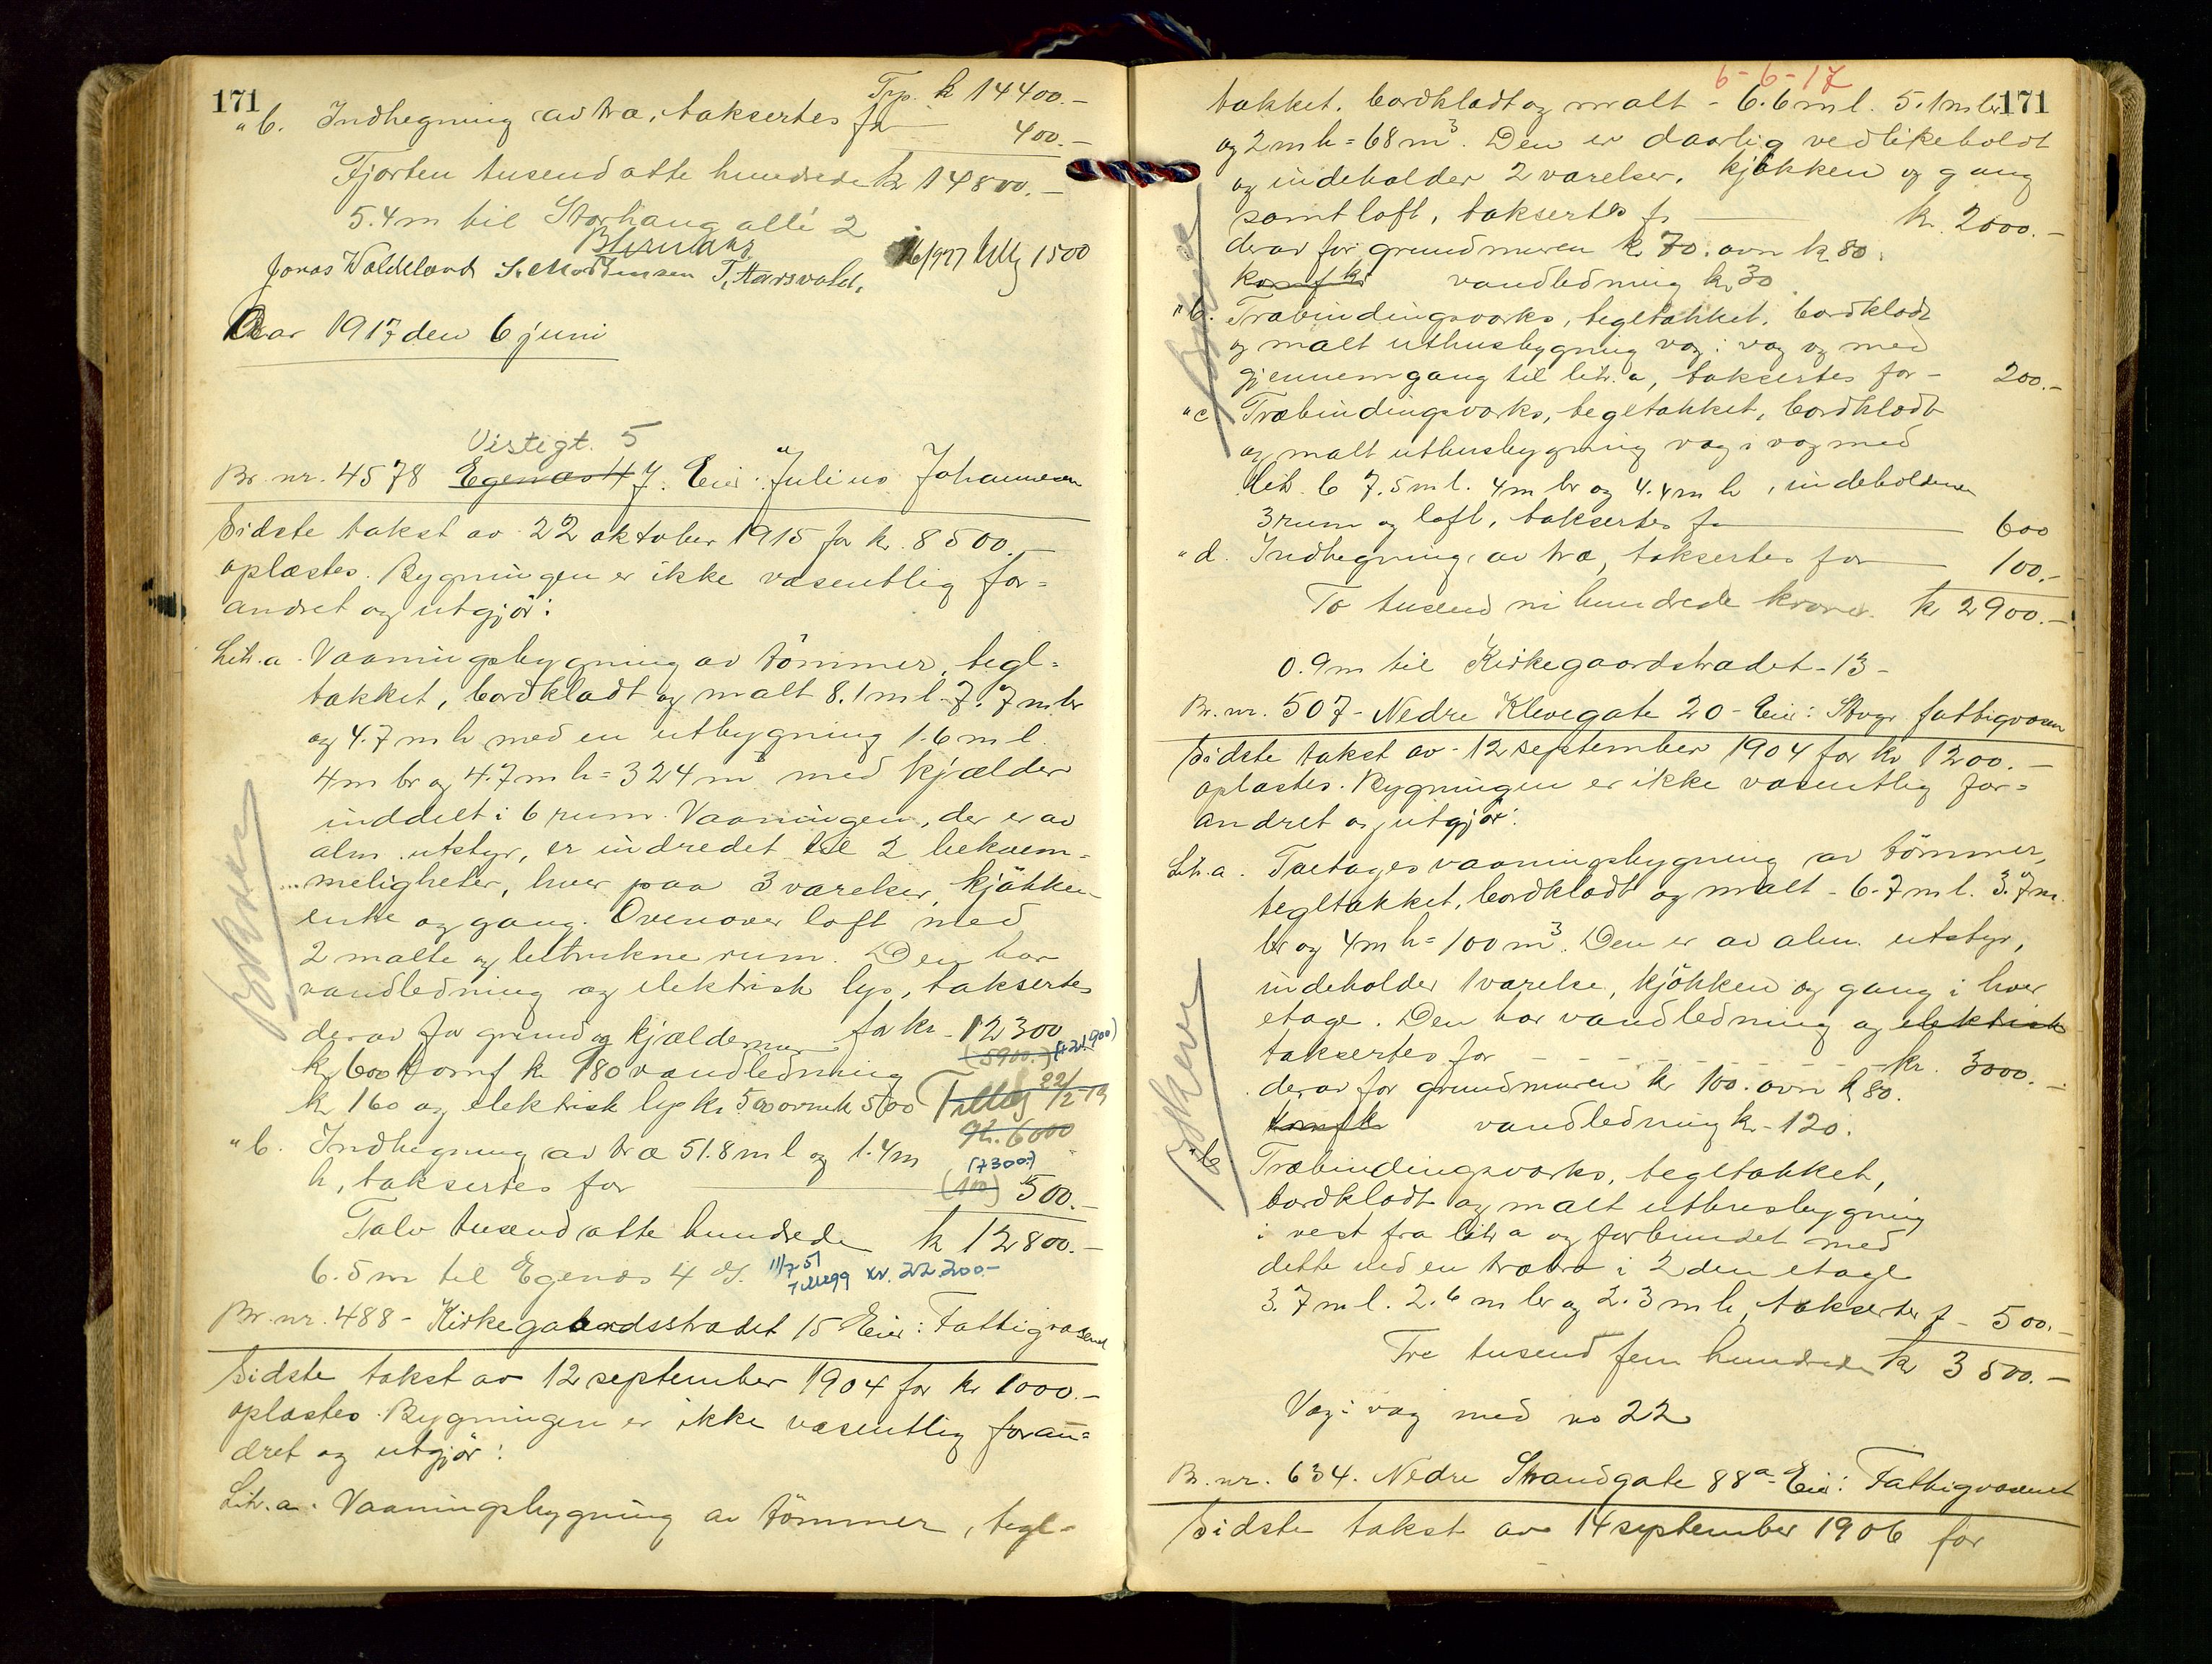 171
Trp. k 14400.-
"b. Indhegning av træ, taksertes for 400.-
Fjorten tusend otte hundrede kr 14800.-
5.4m til Storhaug allé 2
Jonas Waldeland T. Aarsvold.
1500
Aar 1917 den 6 juni
Vistigt. 5
Br. nr. 4578 Egenæs 4 J. Eier: Julius Johannesen
Sidste takst av 22 oktober 1915 for kr. 8500.-
oplæstes. Bygningen er ikke væsentlig for=
andret og utgjör:
Litr. a. Vaaningsbygning av tömmer, tegl=
tækket, bordklædt og malt 8.1 m l. 7.7 m br
og 4.7 m h med en utbygning 1.6 m l.
4 m br og 4.7 m h = 324 m³ med kjælder
inddelt i 6 rum. Vaaningen, der er av
alm. utstyr, er indredet til 2 bekvem=
meligheter, hver paa 3 værelser, kjökken
entre og gang. Ovenover loft med
2 malte og betrukne rum. Den har
vandledning og elektrisk lys, taksertes
for kr. 12300
derav for grund og kjældermur
(5900.-)
k 600 komf k 180 vandledning
Tillæg 22/2-19
k 160 og elektrisk lys kr 500 ovner k 500
Kr. 6000
"b. Indhegning av træ 51.8 m l og 1.4 m
(7300.-)
h, taksertes for (100) 500.-
Tolv tusend otte hundrede k 12800.-
6.5 m til Egenæs 4 J.
11/7 51 Tillegg kr. 22 200.-
Br. nr. 488 - Kirkegaardsstrædet 15 Eier: Fattigvæsenet
Sidste takst av 12 september 1904 for kr 1000.-
oplæstes. Bygningen er ikke væsentlig foran=
dret og utgjör:
Litr. a. Vaaningsbygning av tömmer, tegl-
6-6-17
171
tækket, bordklædt og malt - 6.6 m l. 5.1 m br
og 2 m h = 68 m³. Den er daarlig vedlikeholdt
og indeholder 2 værelser, kjökken og gang
samt loft, taksertes f. kr. 2000.-
derav for grundmuren k 70. ovn k 80.
komf k vandledning kr 30
"b. Træbindingsværks, tegltækket, bordklædt
og malt uthusbygning væg i væg og med
gjennemgang til litr. a, taksertes for - 200.-
"c Træbindingsværks, tegltækket, bordklædt
og malt uthusbygning væg i væg med
litr. b 7.5 m l. 4 m br og 4.4 m h, indeholdende
3 rum og loft, taksertes for 600
"d. Indhegning av træ, taksertes for 100.-
To tusend ni hundrede kroner. kr 2900.-
0.9 m til Kirkegaardstrædet - 13 -
Br. nr. 507 - Nedre Klevegate 20 - Eier: Stvgr fattigvæsen
Sidste takst av - 12 september 1904 for kr 1200.-
oplæstes. Bygningen er ikke væsentlig for=
andret og utgjör:
Litr. a. Toetages vaaningsbygning av tömmer,
tegltækket, bordklædt og malt - 6.7 m l. 3.7 m.
br og 4 m h = 100 m³. Den er av alm. utstyr,
indeholder 1 værelse, kjökken og gang i hver
etage. Den har vandledning og elektrisk
taksertes for - - - - kr. 3000.-
derav for grundmuren kr 100. ovn k 80.
komf k vandledning kr - 120.
"b Træbindingsværks, tegltækket,
bordklædt og malt uthusbygning
i vest fra litr a og forbundet med
dette ved en i 2den etage
3.7 m l. 2.6 m br og 2.3 m h, taksertes f - 500.-
Tre tusend fem hundrede kr 3500.-
Væg i væg med no 22
Br. nr. 634. Nedre Strandgate 88a - Eier: Fattigvæsenet
Sidste takst av 14 september 1906 for